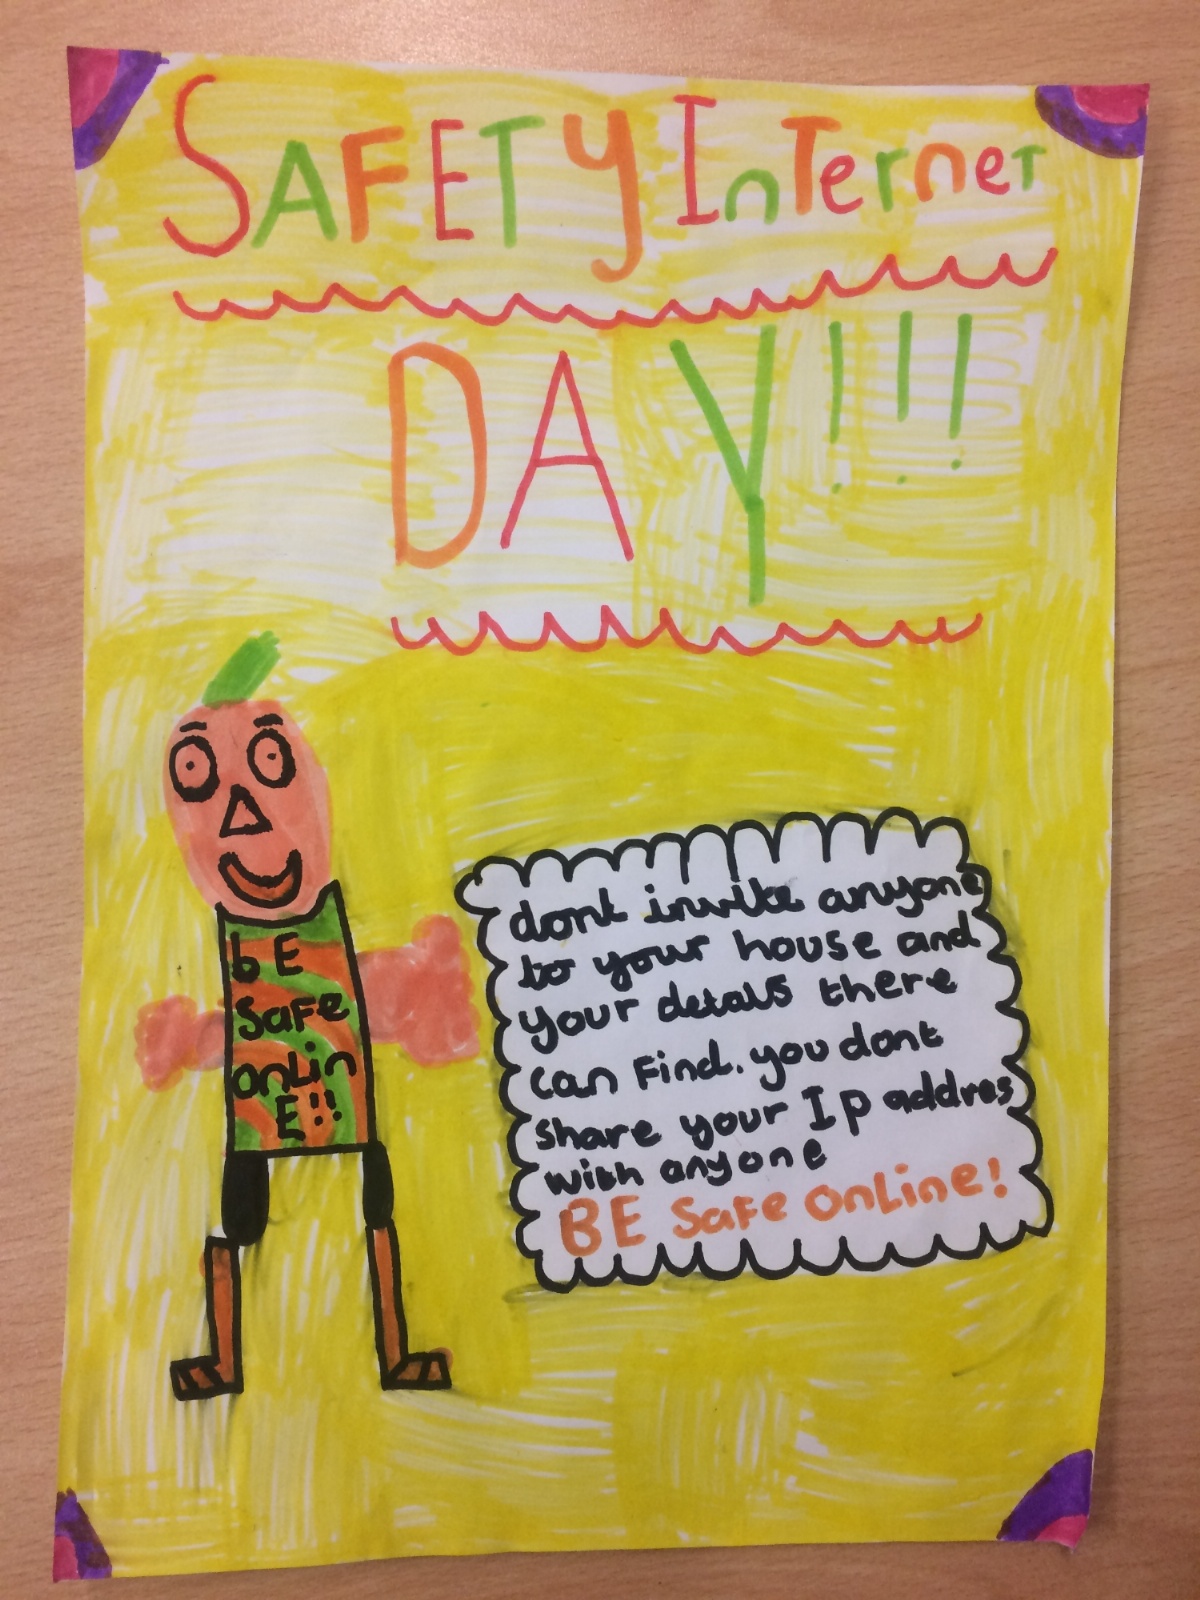 SAFETY InTernet
DAY!!!
bE
Safe
onLin
E!!
dont invite anyone
to your house and
your details there
can Find. you dont
share your Ip addres
with anyone
BE Safe OnLine!